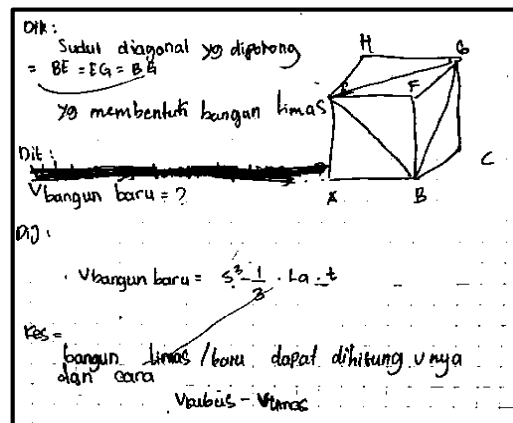 Dik :
Sudut diagonal yg dipotong
= BE = EG = BG
yg membentuk bangun limas
H G
E F
C
A B
Dit :
V bangun baru = ?
Dij :
V bangun baru = s³ - 1/3 . La . t
Kes =
bangun limas / baru dapat dihitung v nya
dgn cara
Vkubus - Vlimas